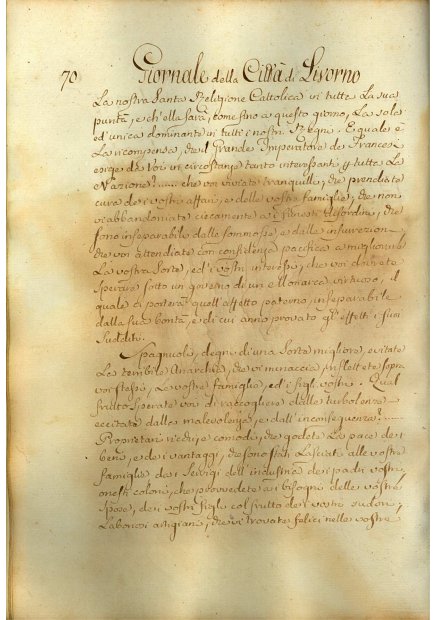 70 Giornale della Città di Livorno
La nostra Santa Religione Cattolica in tutta La sua
punta, e ch'ella sarà, come fino a questo giorno, La sola
ed'unica dominante in tutti i nostri Regni. E quale è
La ricompensa, che il Grande Imperatore de Francesi
esige da Voi in circostanze tanto interessanti p tutta La
Nazione? che voi viviate tranquilli, che prendiate
cura de i vostri affari, e delle vostre famiglie, che non
vi abbandoniate ciecamente a i funesti disordini, che
sono inseparabili dalle sommosse, e dalle insurrezioni
che voi attendiate con confidenza pacifica a migliorare
La vostra Sorte, ed'i vostri interessi, che voi dovete
sperare sotto un governo di un Monarca virtuoso, il
quale vi porterà quell'affetto paterno, inseparabile
dalla sua bontà, e di cui anno provato gli effetti i suoi
Sudditi.
Spagnuoli, degni di una Sorte migliore, evitate
La terribile Anarchia, che vi minaccia, riflettete sopra
voi stessi, Le vostre famiglie, ed i figli vostri. Qual
frutto sperate voi di raccogliere dalle turbolenze
eccitate dalla malevolenza, e dall'inconseguenza?
Proprietari ricchi, e comodi, che godete La pace de i
beni, e de i vantaggi, che sono stati Lasciati alle vostre
famiglie da i Servigi dell'industria de i padri vostri,
onesti coloni, che provvedete a i bisogni delle vostre
Spose, de i vostri figli col frutto de i vostri sudori,
Laboriosi artigiani, che vi trovate felici nelle vostre